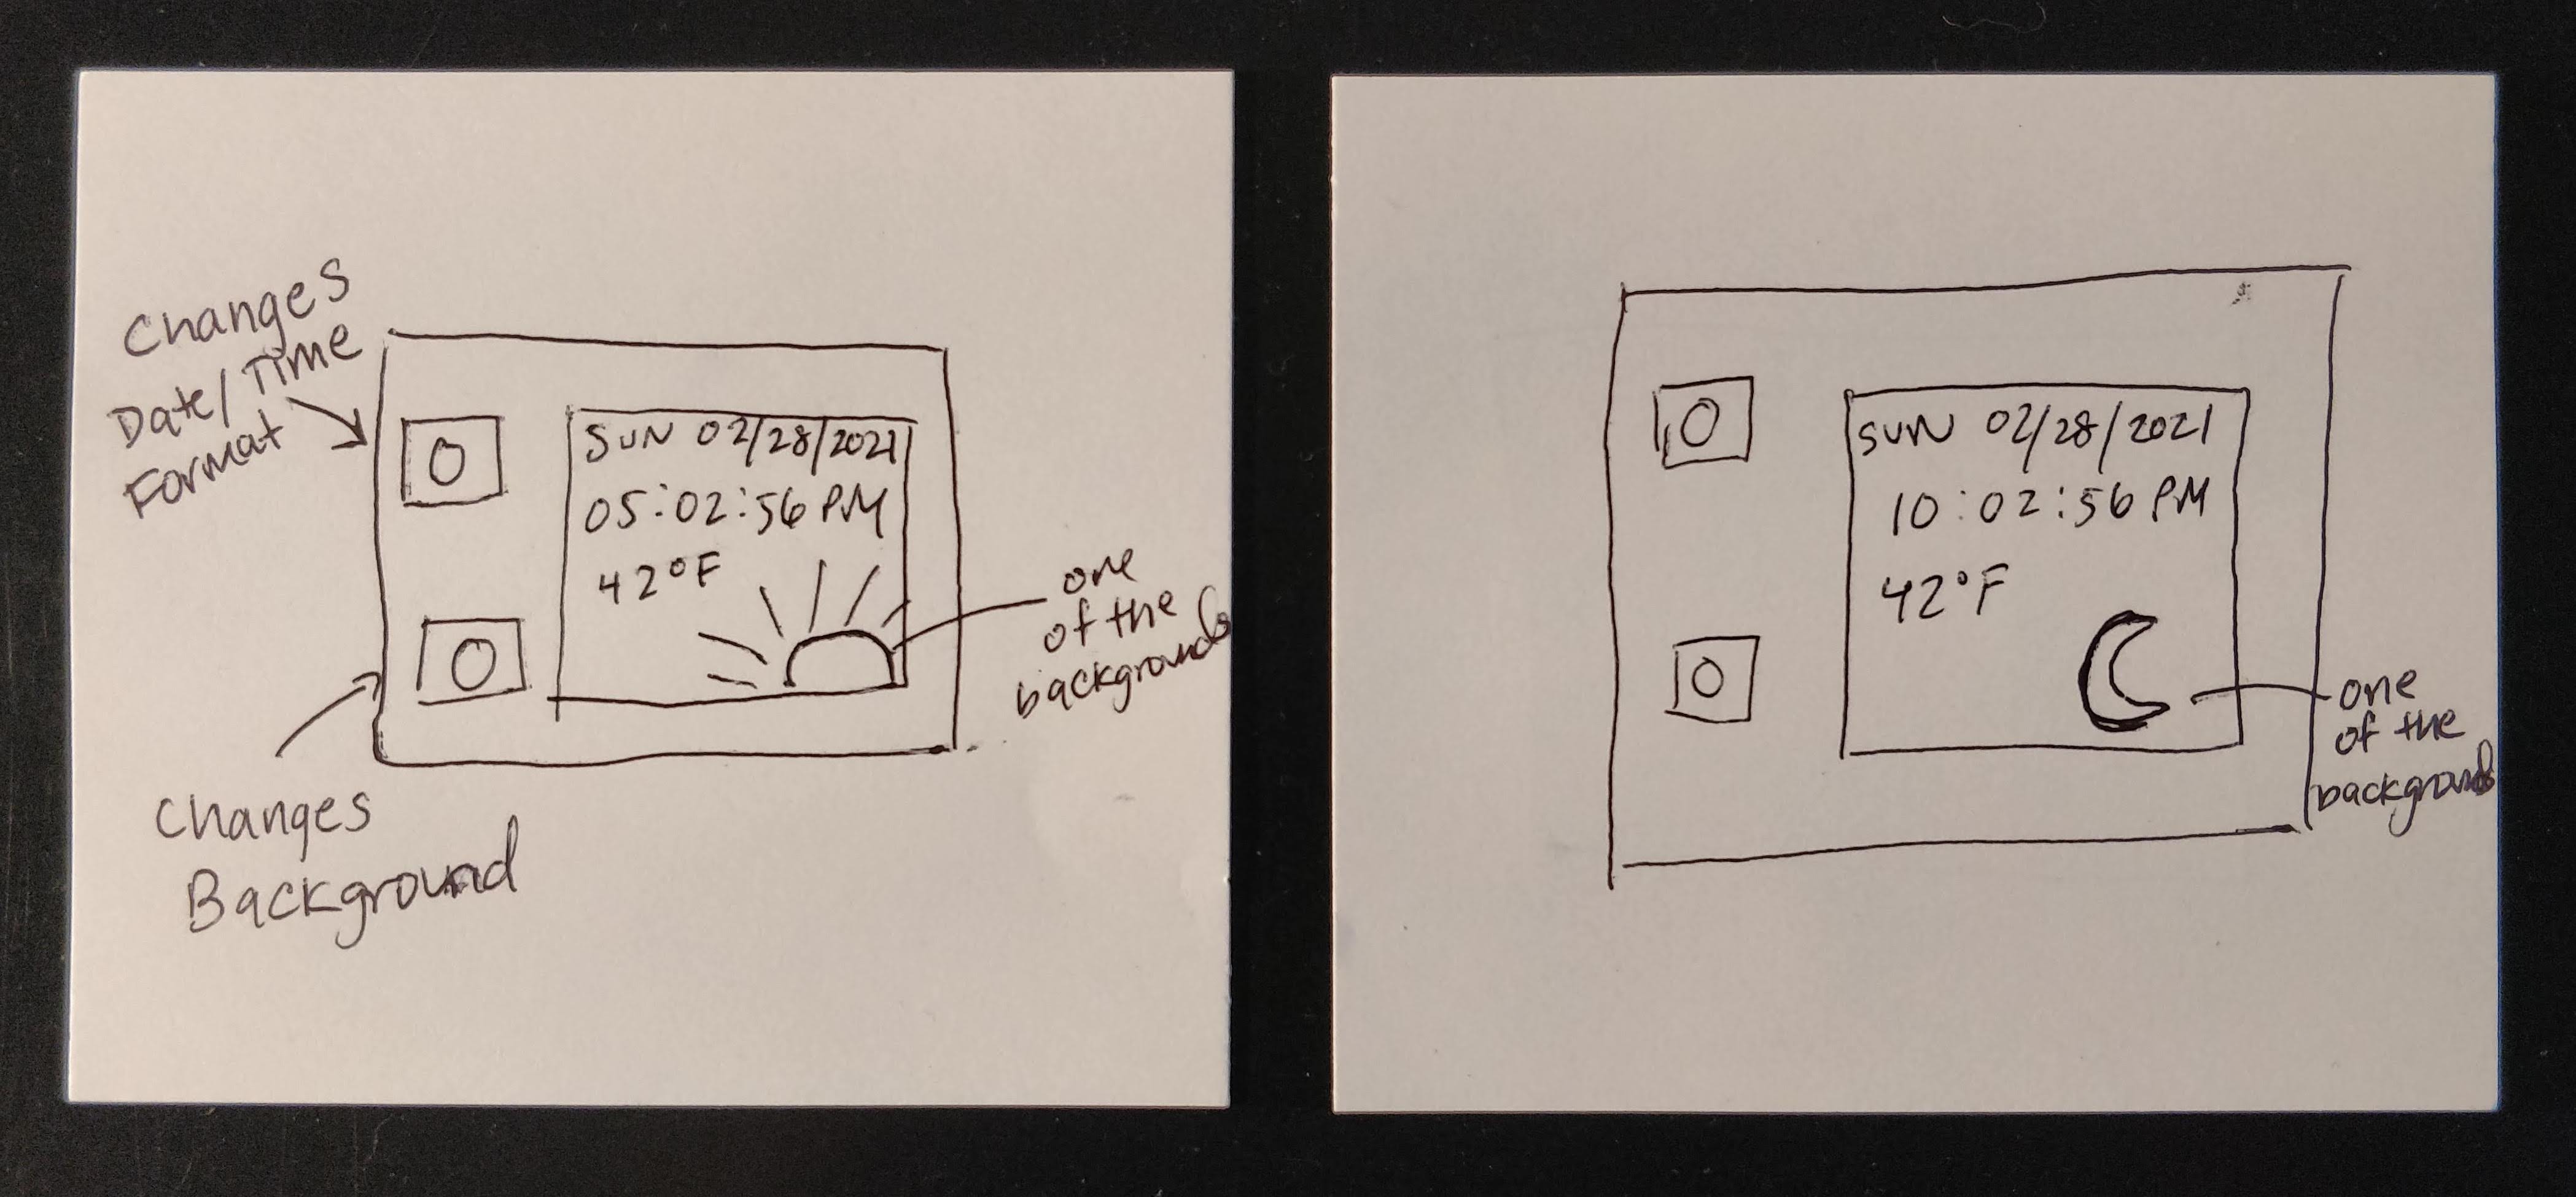 Changes
Date/Time
Format
SUN 02/28/2021
05:02:56 PM
42°F
one
of the
backgrounds
Changes
Background
SUN 02/28/2021
10:02:56 PM
42°F
one
of the
backgrounds